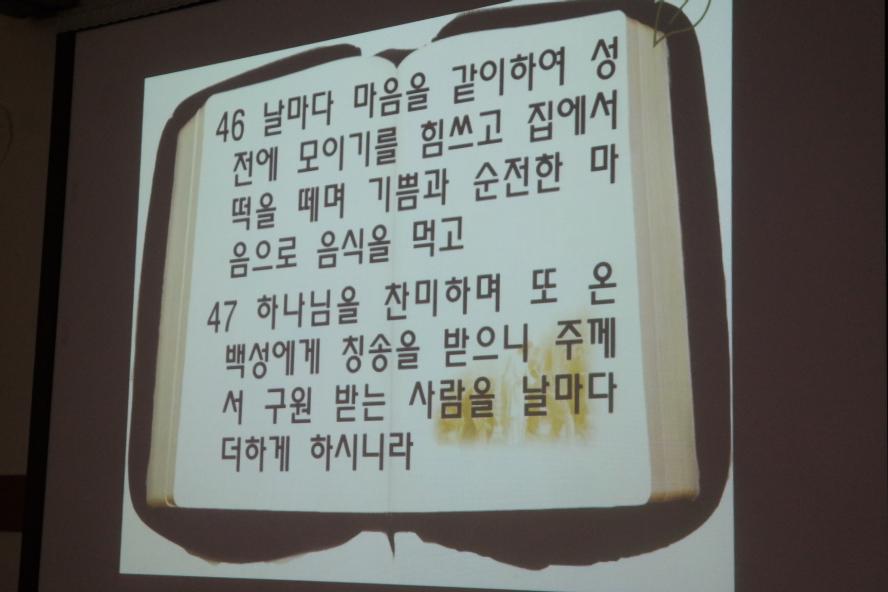 46 날마다 마음을 같이하여 성
전에 모이기를 힘쓰고 집에서
떡을 떼며 기쁨과 순전한 마
음으로 음식을 먹고
47 하나님을 찬미하며 또 온
백성에게 칭송을 받으니 주께
서 구원 받는 사람을 날마다
더하게 하시니라